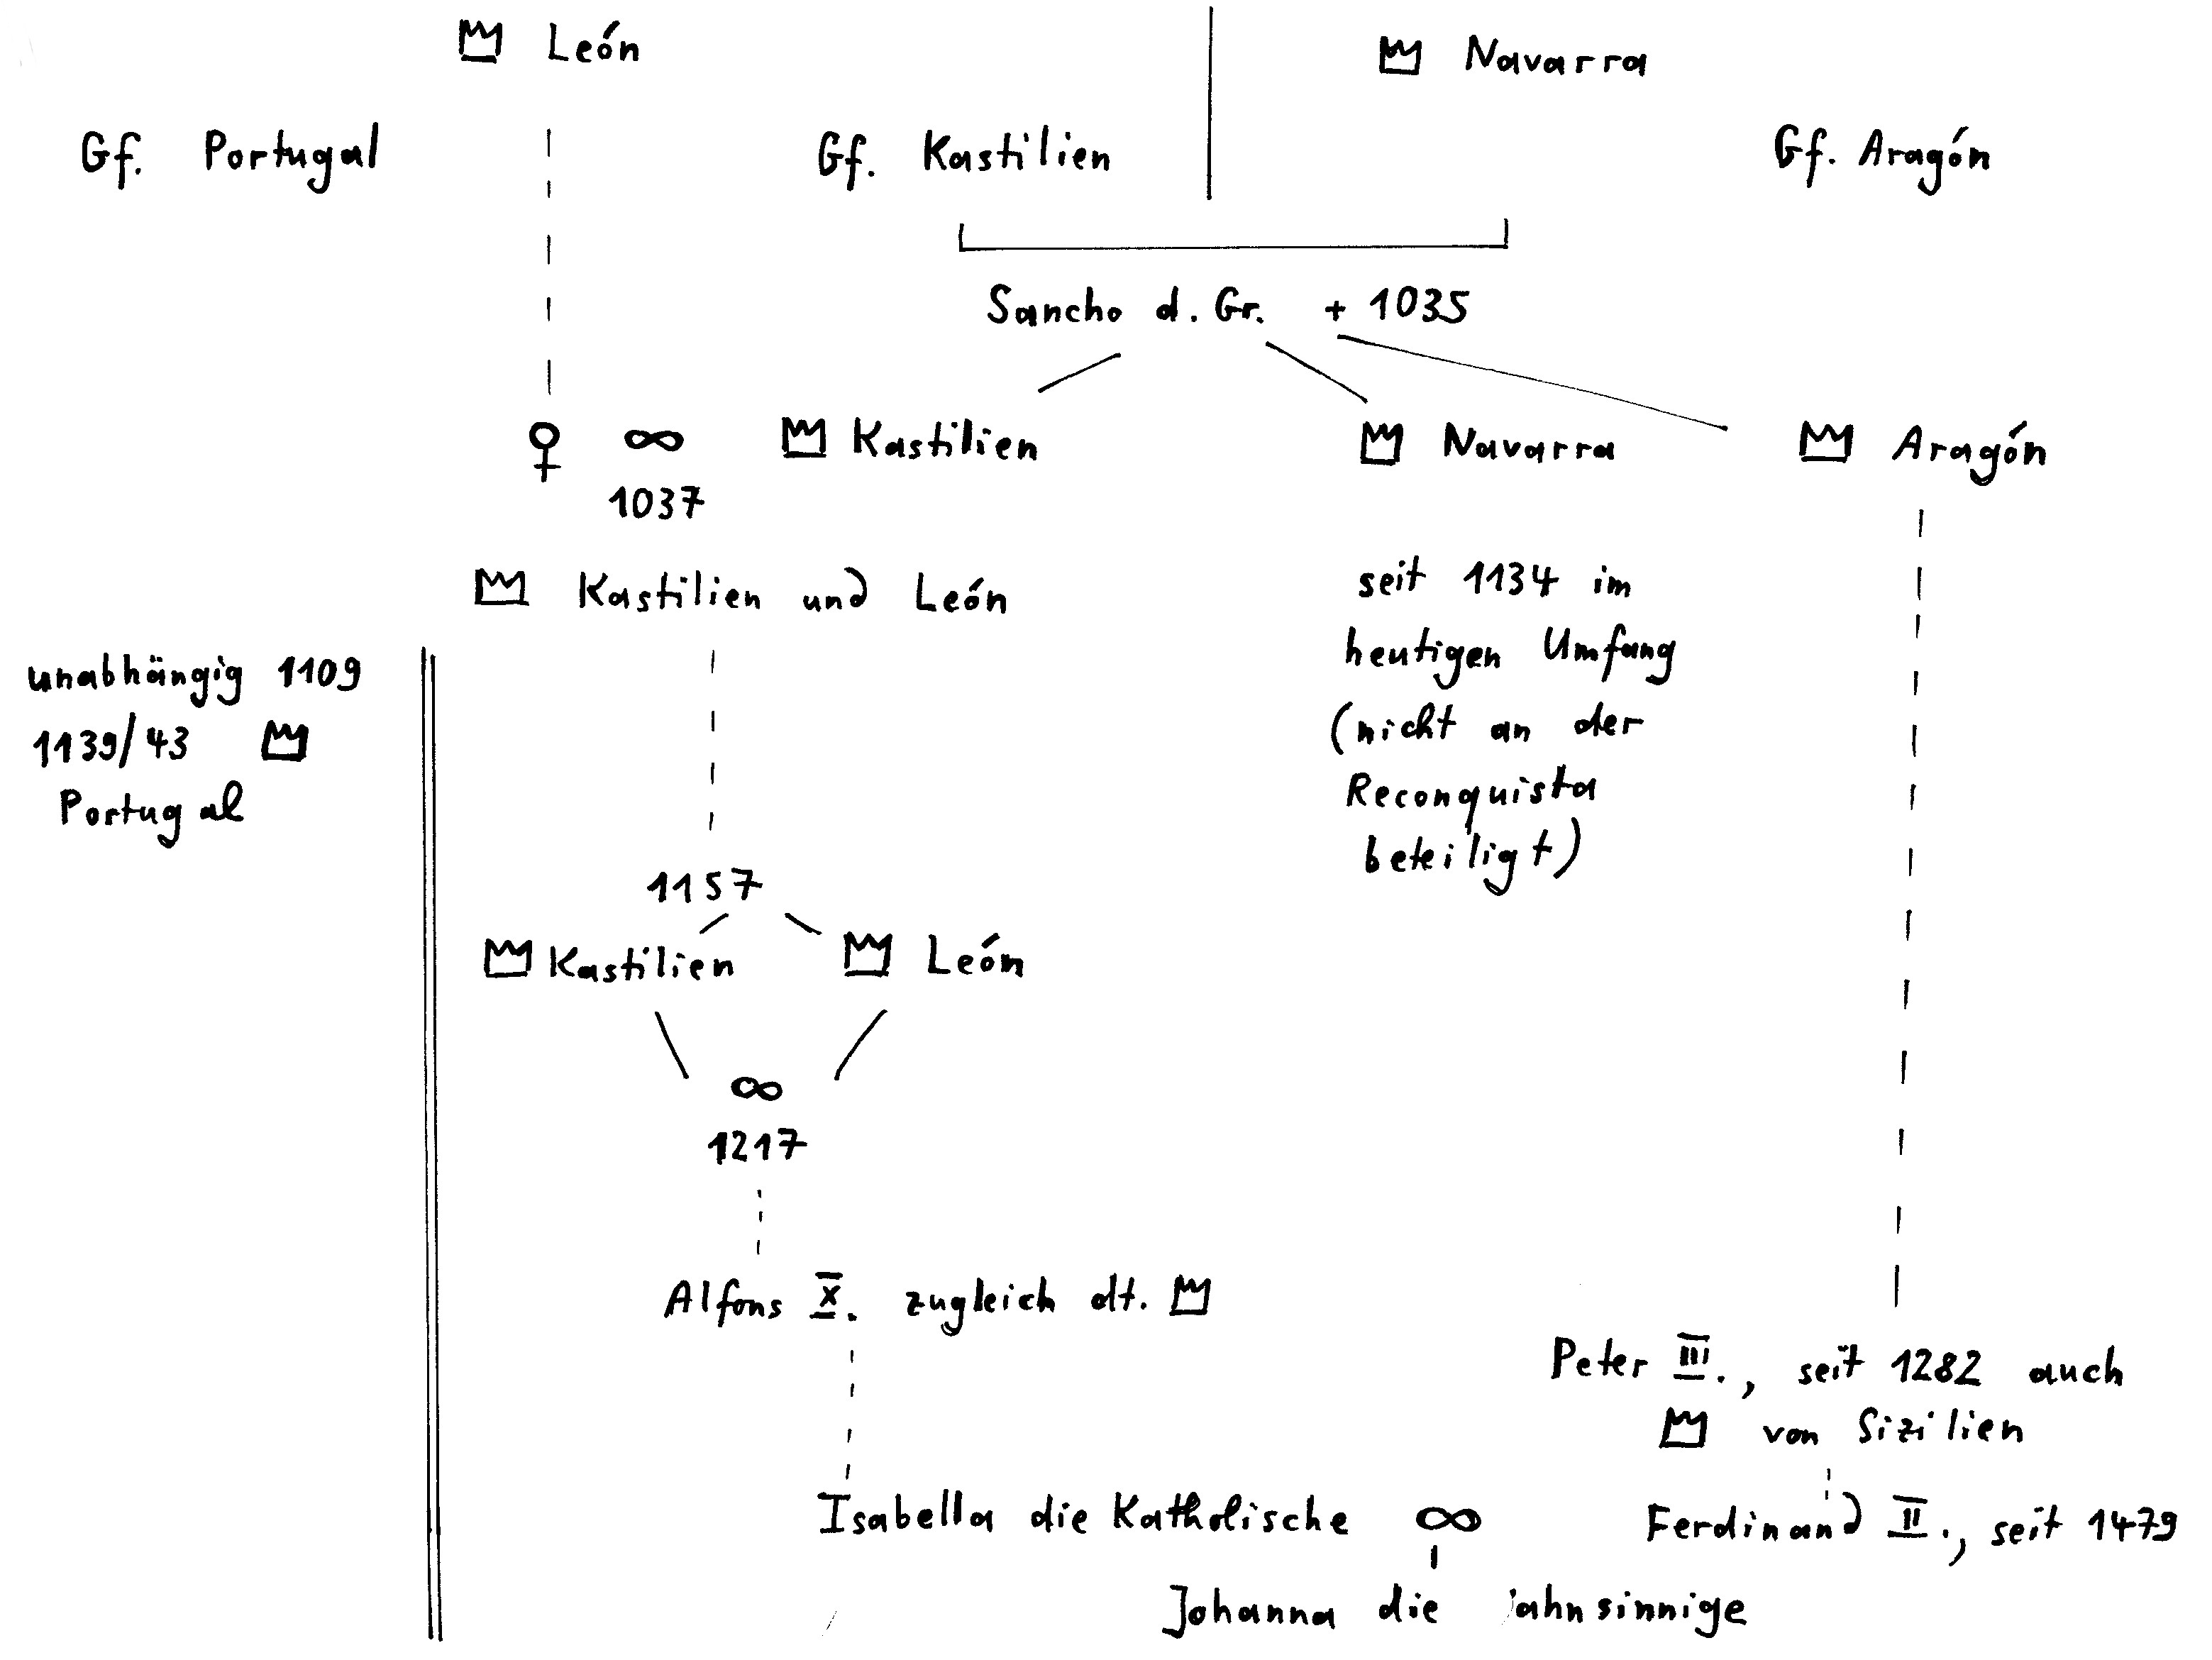 León
Navarra
Gf. Portugal
Gf. Kastilien
Gf. Aragón
Sancho d. Gr. + 1035
♀ ∞ Kastilien
1037
Navarra
Aragón
Kastilien und León
seit 1134 im
heutigen Umfang
(nicht an der
Reconquista
beteiligt)
unabhängig 1109
1139/43
Portugal
1157
Kastilien
León
∞
1217
Alfons X. zugleich dt.
Peter III., seit 1282 auch
von Sizilien
Isabella die Katholische ∞ Ferdinand II., seit 1479
Johanna die ahnsinnige